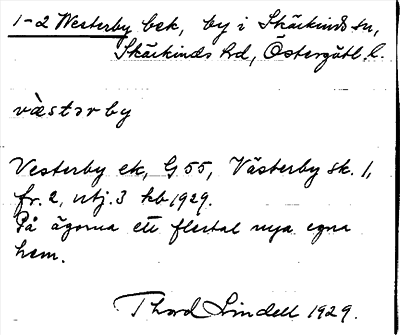 1-2 Westerby bek, by i Skärkinds sn,
Skärkinds hd, Östergötl. l.
västerby
Vesterby ek, G 55, Västerby sk. 1,
fr. 2, utj. 3 kb 1929.
På ägorna ett flertal nya egna
hem.
Thord Lindell 1929.